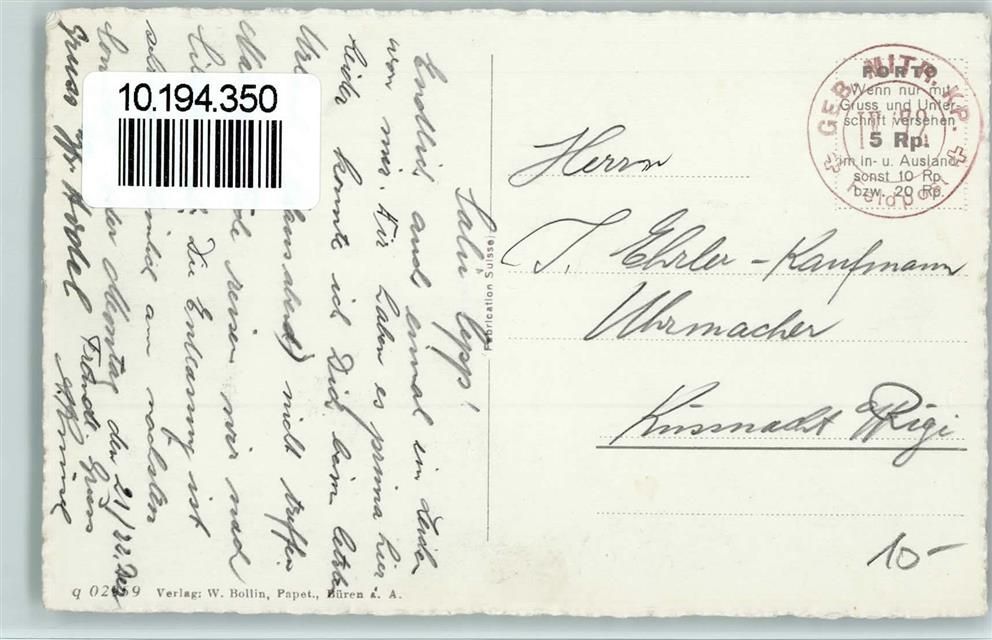 10.194.350
PORTO
Wenn nur mit
Gruss und Unter-
schrift versehen
5 Rp.
im In- u. Ausland
sonst 10 Rp.
bzw. 20 Rp.
GEB. MITR. KP.
Feldpost
Herrn
J. Ehrler-Kaufmann
Uhrmacher
Küssnacht a/Rigi
10-
Fabrication Suisse
Salü Sepp!
Endlich auch einmal ein
von mir. Wir haben es prima hier.
Leider konnte ich Dich beim letzten
nicht treffen
reisen wir nach
Die Entlassung ist
am nächsten
Montag den 21/22. Dez
Freundl. Grüss
Gruss
q 02 69 Verlag: W. Bollin, Papet., Büren a. A.